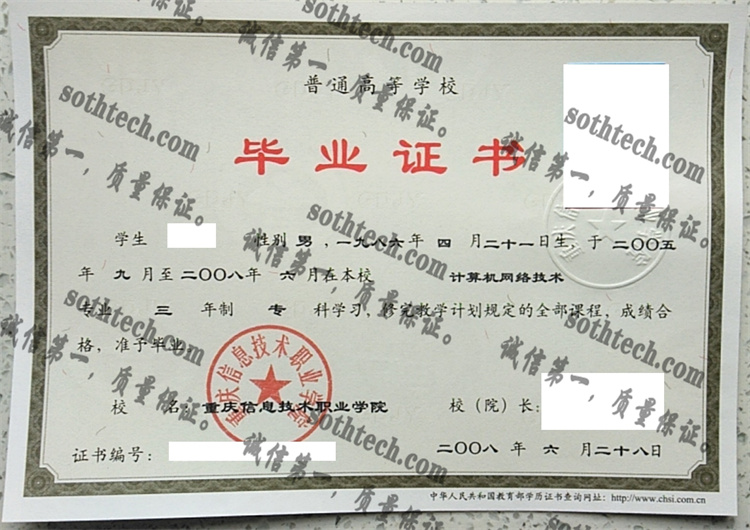 普通高等学校
毕业证书
学生 性别 男，一九八六年 四 月二十一日生，于 二〇〇五
年 九 月至 二〇〇八年 六 月在本校 计算机网络技术
专业 三 年制 专 科学习，修完教学计划规定的全部课程，成绩合
格，准予毕业。
校 名：重庆信息技术职业学院 校（院）长：
证书编号： 二〇〇八 年 六 月二十八日
中华人民共和国教育部学历证书查询网址：http://www.chsi.com.cn
重庆信息技术职业学院
sothtech.com
诚信第一，质量保证。
sothtech.com
诚信第一，质量保证。
sothtech.com
诚信第一，质量保证。
sothtech.com
诚信第一，质量保证。
sothtech.com
诚信第一，质量保证。
sothtech.com
诚信第一，质量保证。
sothtech.com
诚信第一，质量保证。
sothtech.com
诚信第一，质量保证。